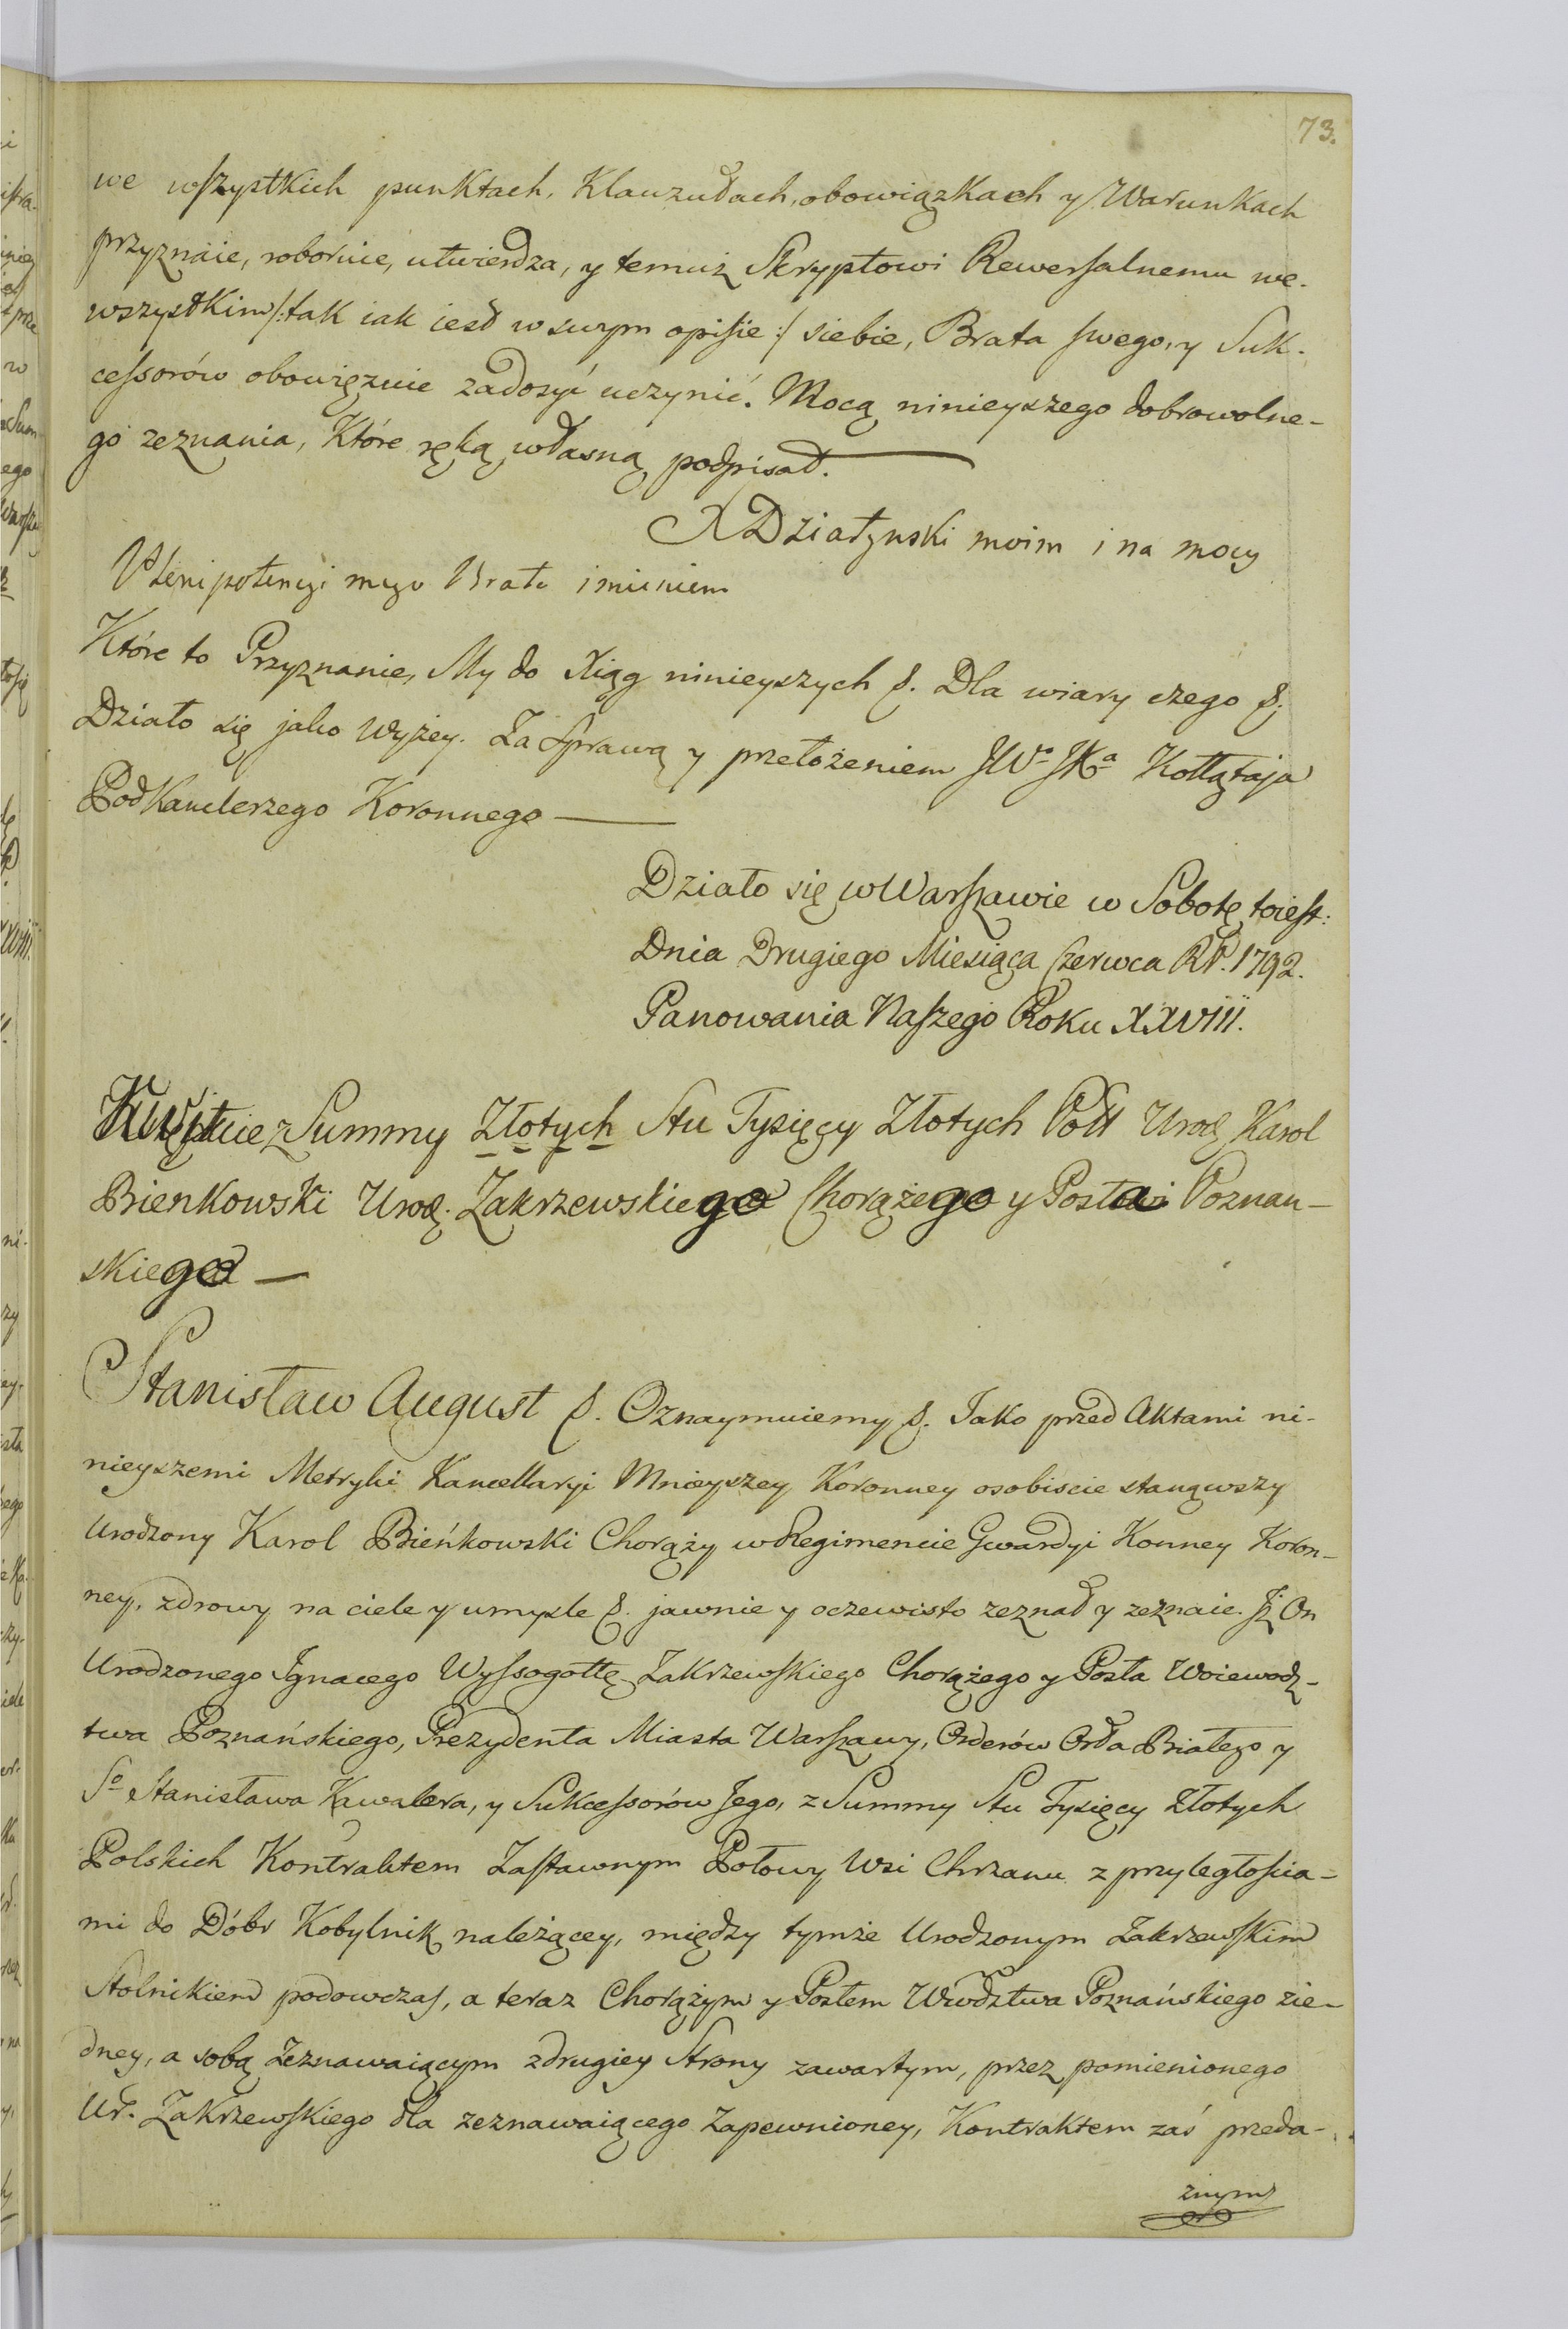 73.
we wszystkich punktach, Klauzułach, obowiązkach y Warunkach
przyznaie, roboruie, utwierdza, y temuż Skryptowi Rewersalnemu we
wszystkim /: tak iak iest w swym opisie :/ siebie, Brata swego, y Suk-
cessorów obowięzuie zadosyć uczynić. Mocą ninieyszego dobrowolne-
go zeznania, Które ręką własną podpisał.
X Działynski moim i na mocy
Plenipotencyi mego Brata imieniem
Które to Przyznanie, My do Xiąg ninieyszych &. Dla wiary czego &.
Działo się jako wyżey. Za Sprawą y przełożeniem JWo JXa Kołłątaja
PodKanclerzego Koronnego —
Działo się w Warszawie w Sobotę toiest:
Dnia Drugiego Miesiąca Czerwca RP. 1792.
Panowania Naszego Roku XXVIII.
Kwituie z Summy Złotych Stu Tysięcy Złotych Poll Urodz Karol
Bienkowski Urodz. Zakrzewskiego Chorążego y Posła Poznan-
skiego —
Stanisław August &. Oznaymuiemy &. Jako przed Aktami ni-
nieyszemi Metryki Kancellaryi Mnieyszey Koronney osobiscie stanąwszy
Urodzony Karol Bieńkowski Chorąży w Regimencie Gwardyi Konney Koron-
ney, zdrowy na ciele y umysle &. jawnie y oczewisto zeznał y zeznaie. Jż On
Urodzonego Jgnacego Wyssogottę Zakrzewskiego Chorążego y Posła Woiewodz-
twa Poznańskiego, Prezydenta Miasta Warszawy, Orderów Orła Białego y
So Stanisława Kawalera, y Sukcessorów Jego, z Summy Stu Tysięcy Złotych
Polskich Kontraktem Zastawnym Połowy Wsi Chrzanu z przyległościa-
mi do Dóbr Kobylnik należącey, między tymże Urodzonym Zakrzewskim
Stolnikiem podowczas, a teraz Chorążym y Posłem Wwodztwa Poznańskiego zie-
dney, a sobą Zeznawaiącym z drugiey Strony zawartym, przez pomienionego
Ur. Zakrzewskiego dla zeznawaiącego Zapewnioney, Kontraktem zaś przeda-
żnym